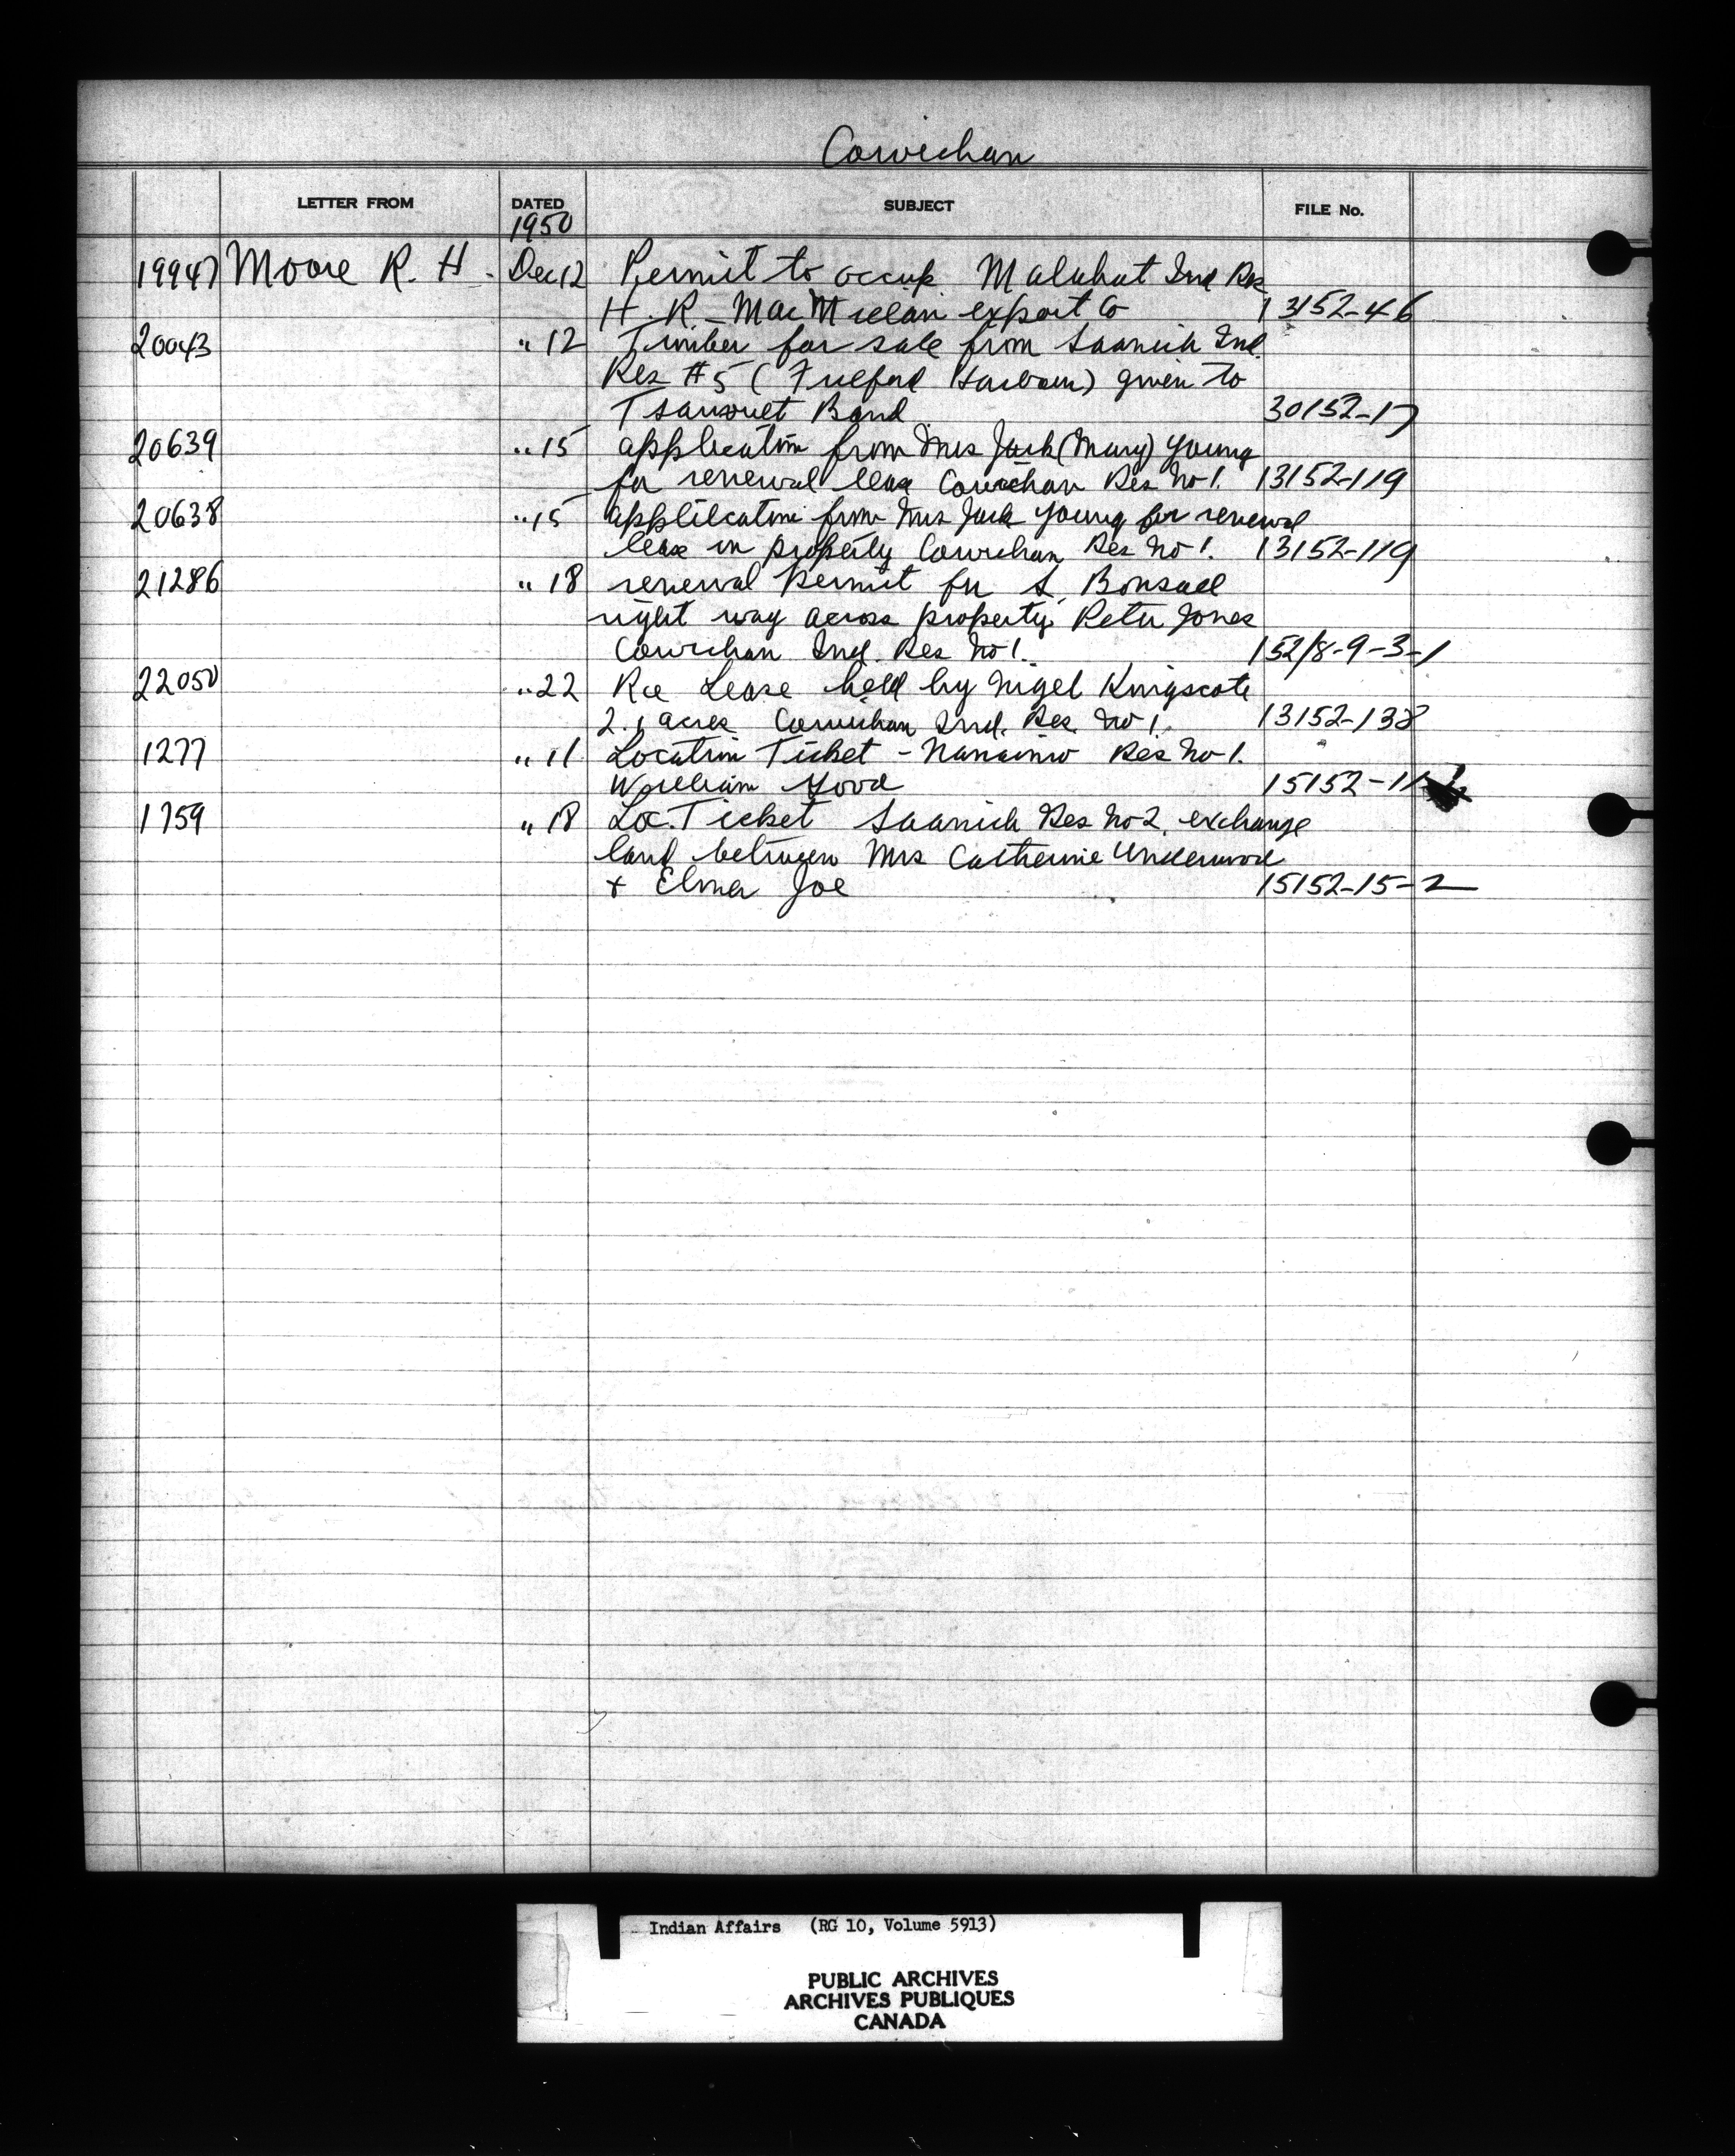 Cowichan
LETTER FROM DATED SUBJECT FILE No.
1950
19947 Moore R. H. Dec 12 Permit to occup Malahat Ind Res
H. R. MacMillan export Co 13152-46
20043 " 12 Timber for sale from Saanich Ind.
Res #5 (Fulford Harbour) given to
Tsawout Band 30152-17
20639 " 15 application from Mrs Jack (Mary) Young
for renewal lease Cowichan Res No 1. 13152-119
20638 " 15 application from Mrs Jack Young for renewal
lease in property Cowichan Res No 1. 13152-119
21286 " 18 renewal Permit for S. Bonsall
right way across property Peter Jones
Cowichan Ind. Res No 1. 152/8-9-3-1
22050 " 22 Re Lease held by Nigel Kingscote
2.1 acres Cowichan Ind. Res. No 1. 13152-138
1277 " 11 Location Ticket - Nanaimo Res No 1.
William Good 15152-11
1759 " 18 Loc. Ticket Saanich Res No 2, exchange
land between Mrs Catherine Underwood
+ Elmer Joe 15152-15-2
Indian Affairs (RG 10, Volume 5913)
PUBLIC ARCHIVES
ARCHIVES PUBLIQUES
CANADA